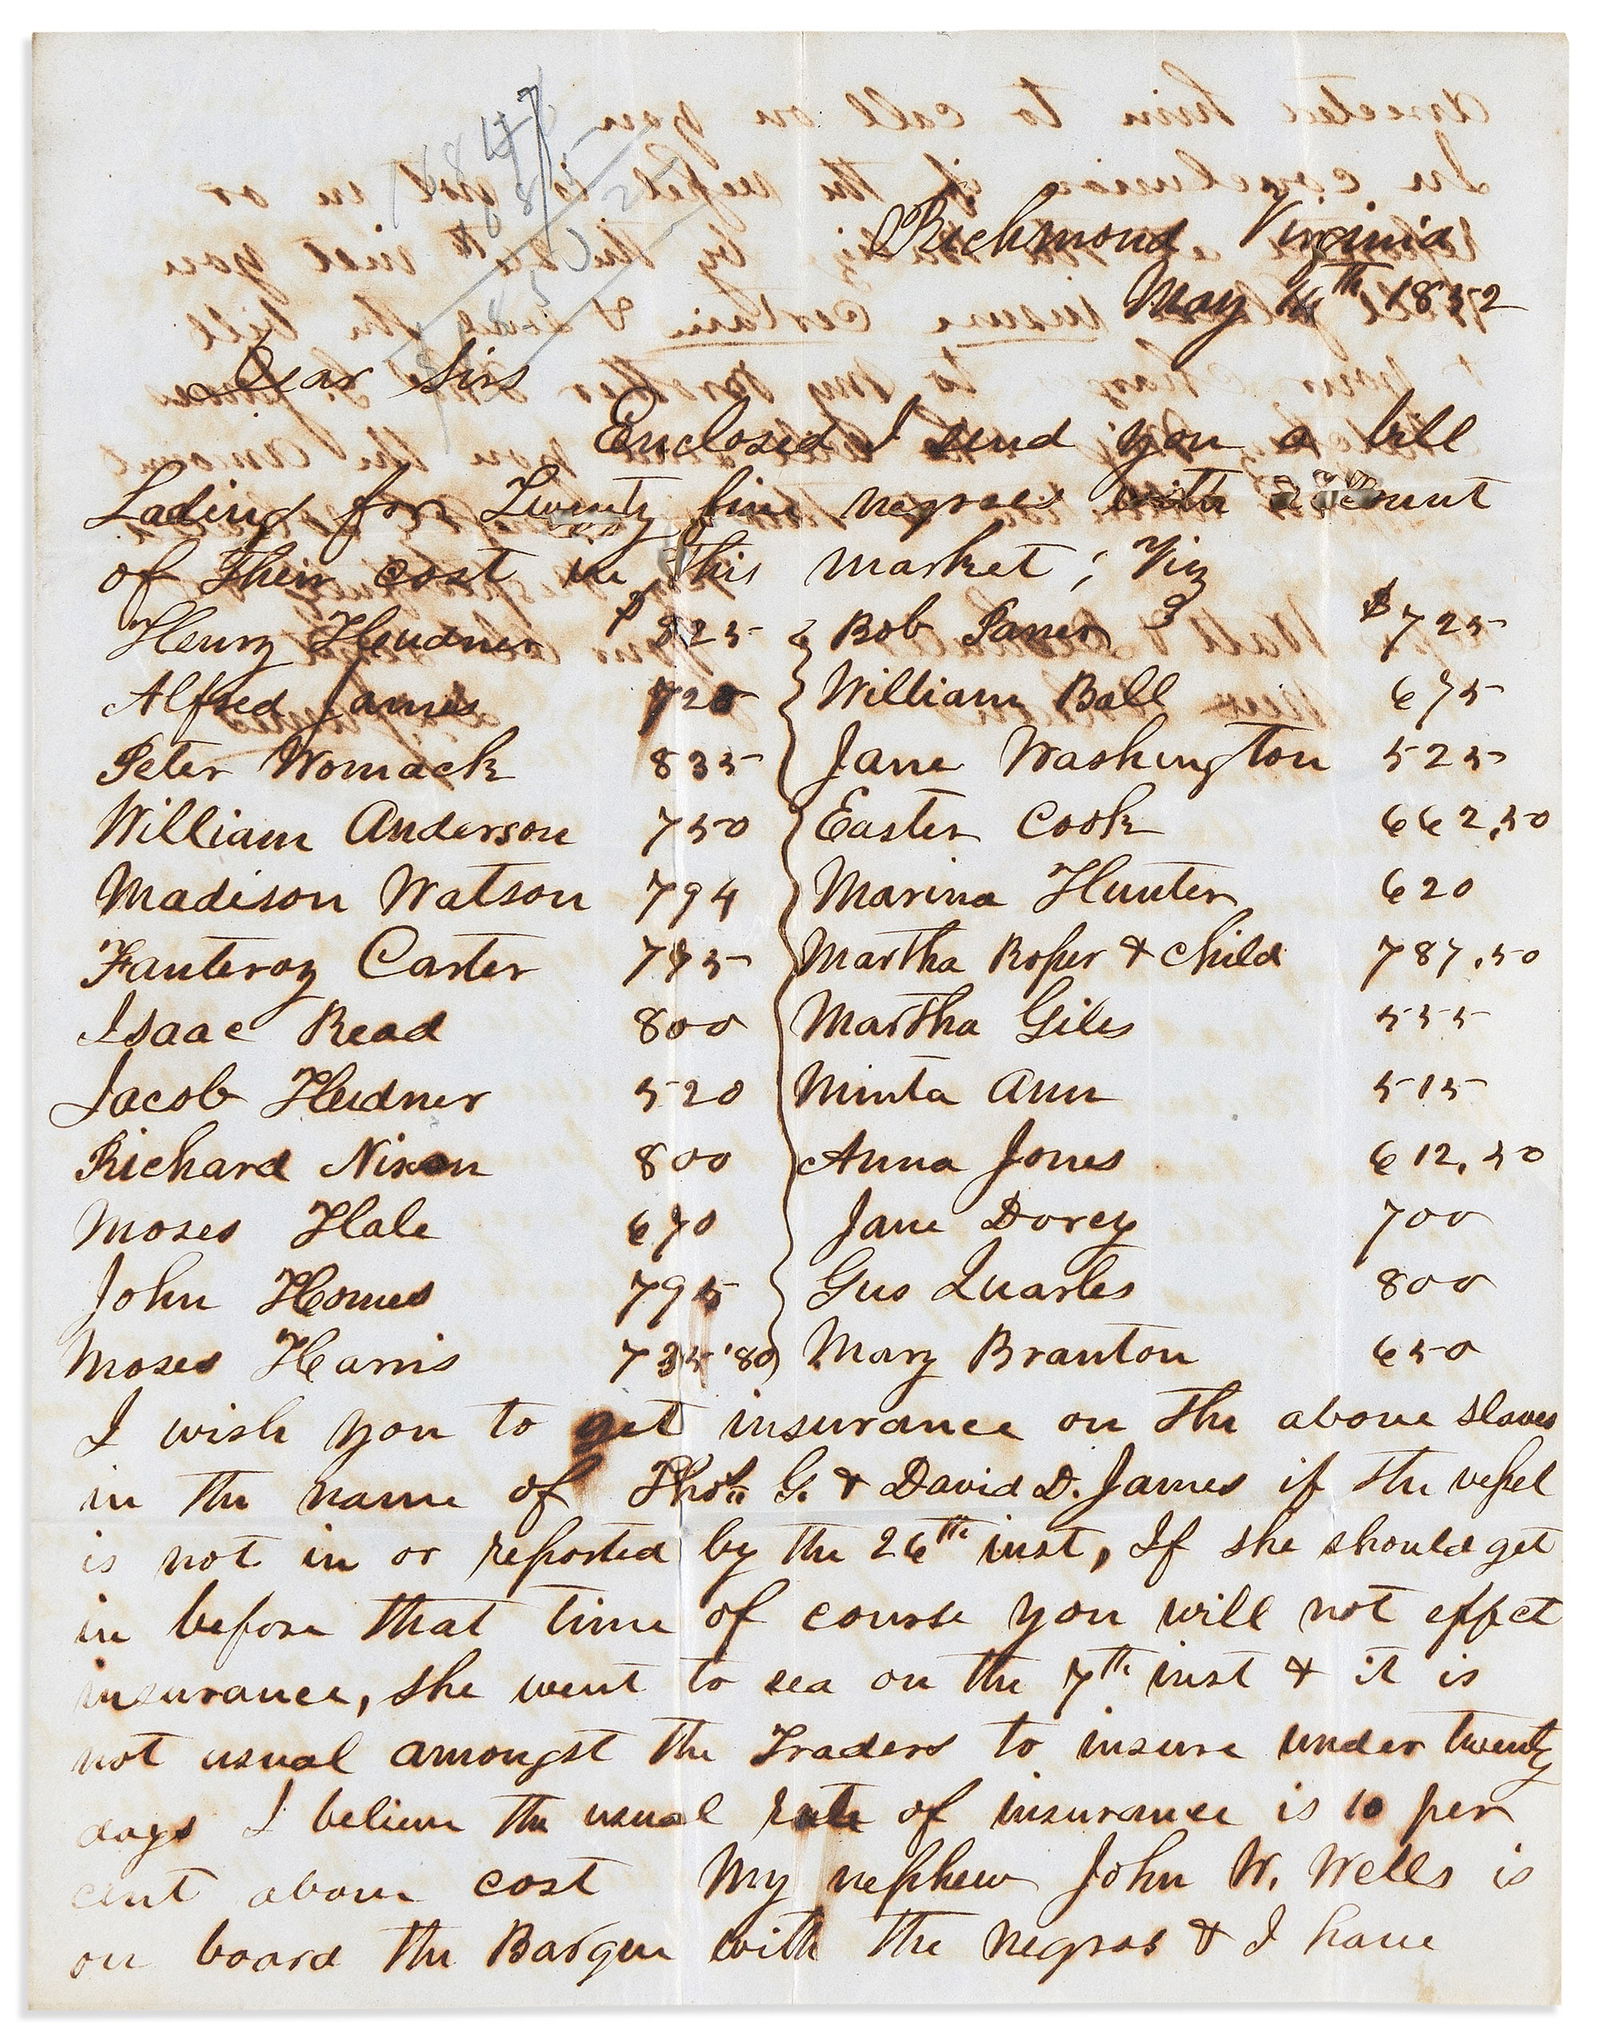 Richmond Virginia
May 14th 1852
Dear Sirs
Enclosed I send you a bill
Lading for Twenty five negroes with account
of Their cost in This market ; Viz
Henry Heudner $ 825 Bob Paner $ 725
Alfred James 720 William Ball 675
Peter Womack 835 Jane Washington 525
William Anderson 750 Easter Cook 662,50
Madison Watson 794 Marina Hunter 620
Fanteroy Carter 795 Martha Roper & Child 787,50
Isaac Read 800 Martha Giles 555
Jacob Heudner 520 Minta Ann 515
Richard Nixon 800 Anna Jones 612,50
Moses Hale 670 Jane Dorcy 700
John Homes 795 Gus Quarles 800
Moses Harris 735 '80 Mary Branton 650
I wish you to get insurance on the above slaves
in the name of Thos. G. & David D. James if the vessel
is not in or reported by the 26th inst, If she should get
in before that time of course you will not effect
insurance, she went to sea on the 7th inst & it is
not usual amongst the Traders to insure under twenty
days I believe the usual rate of insurance is 10 per
cent above cost My nephew John W. Wells is
on board the Barque with the negros & I have